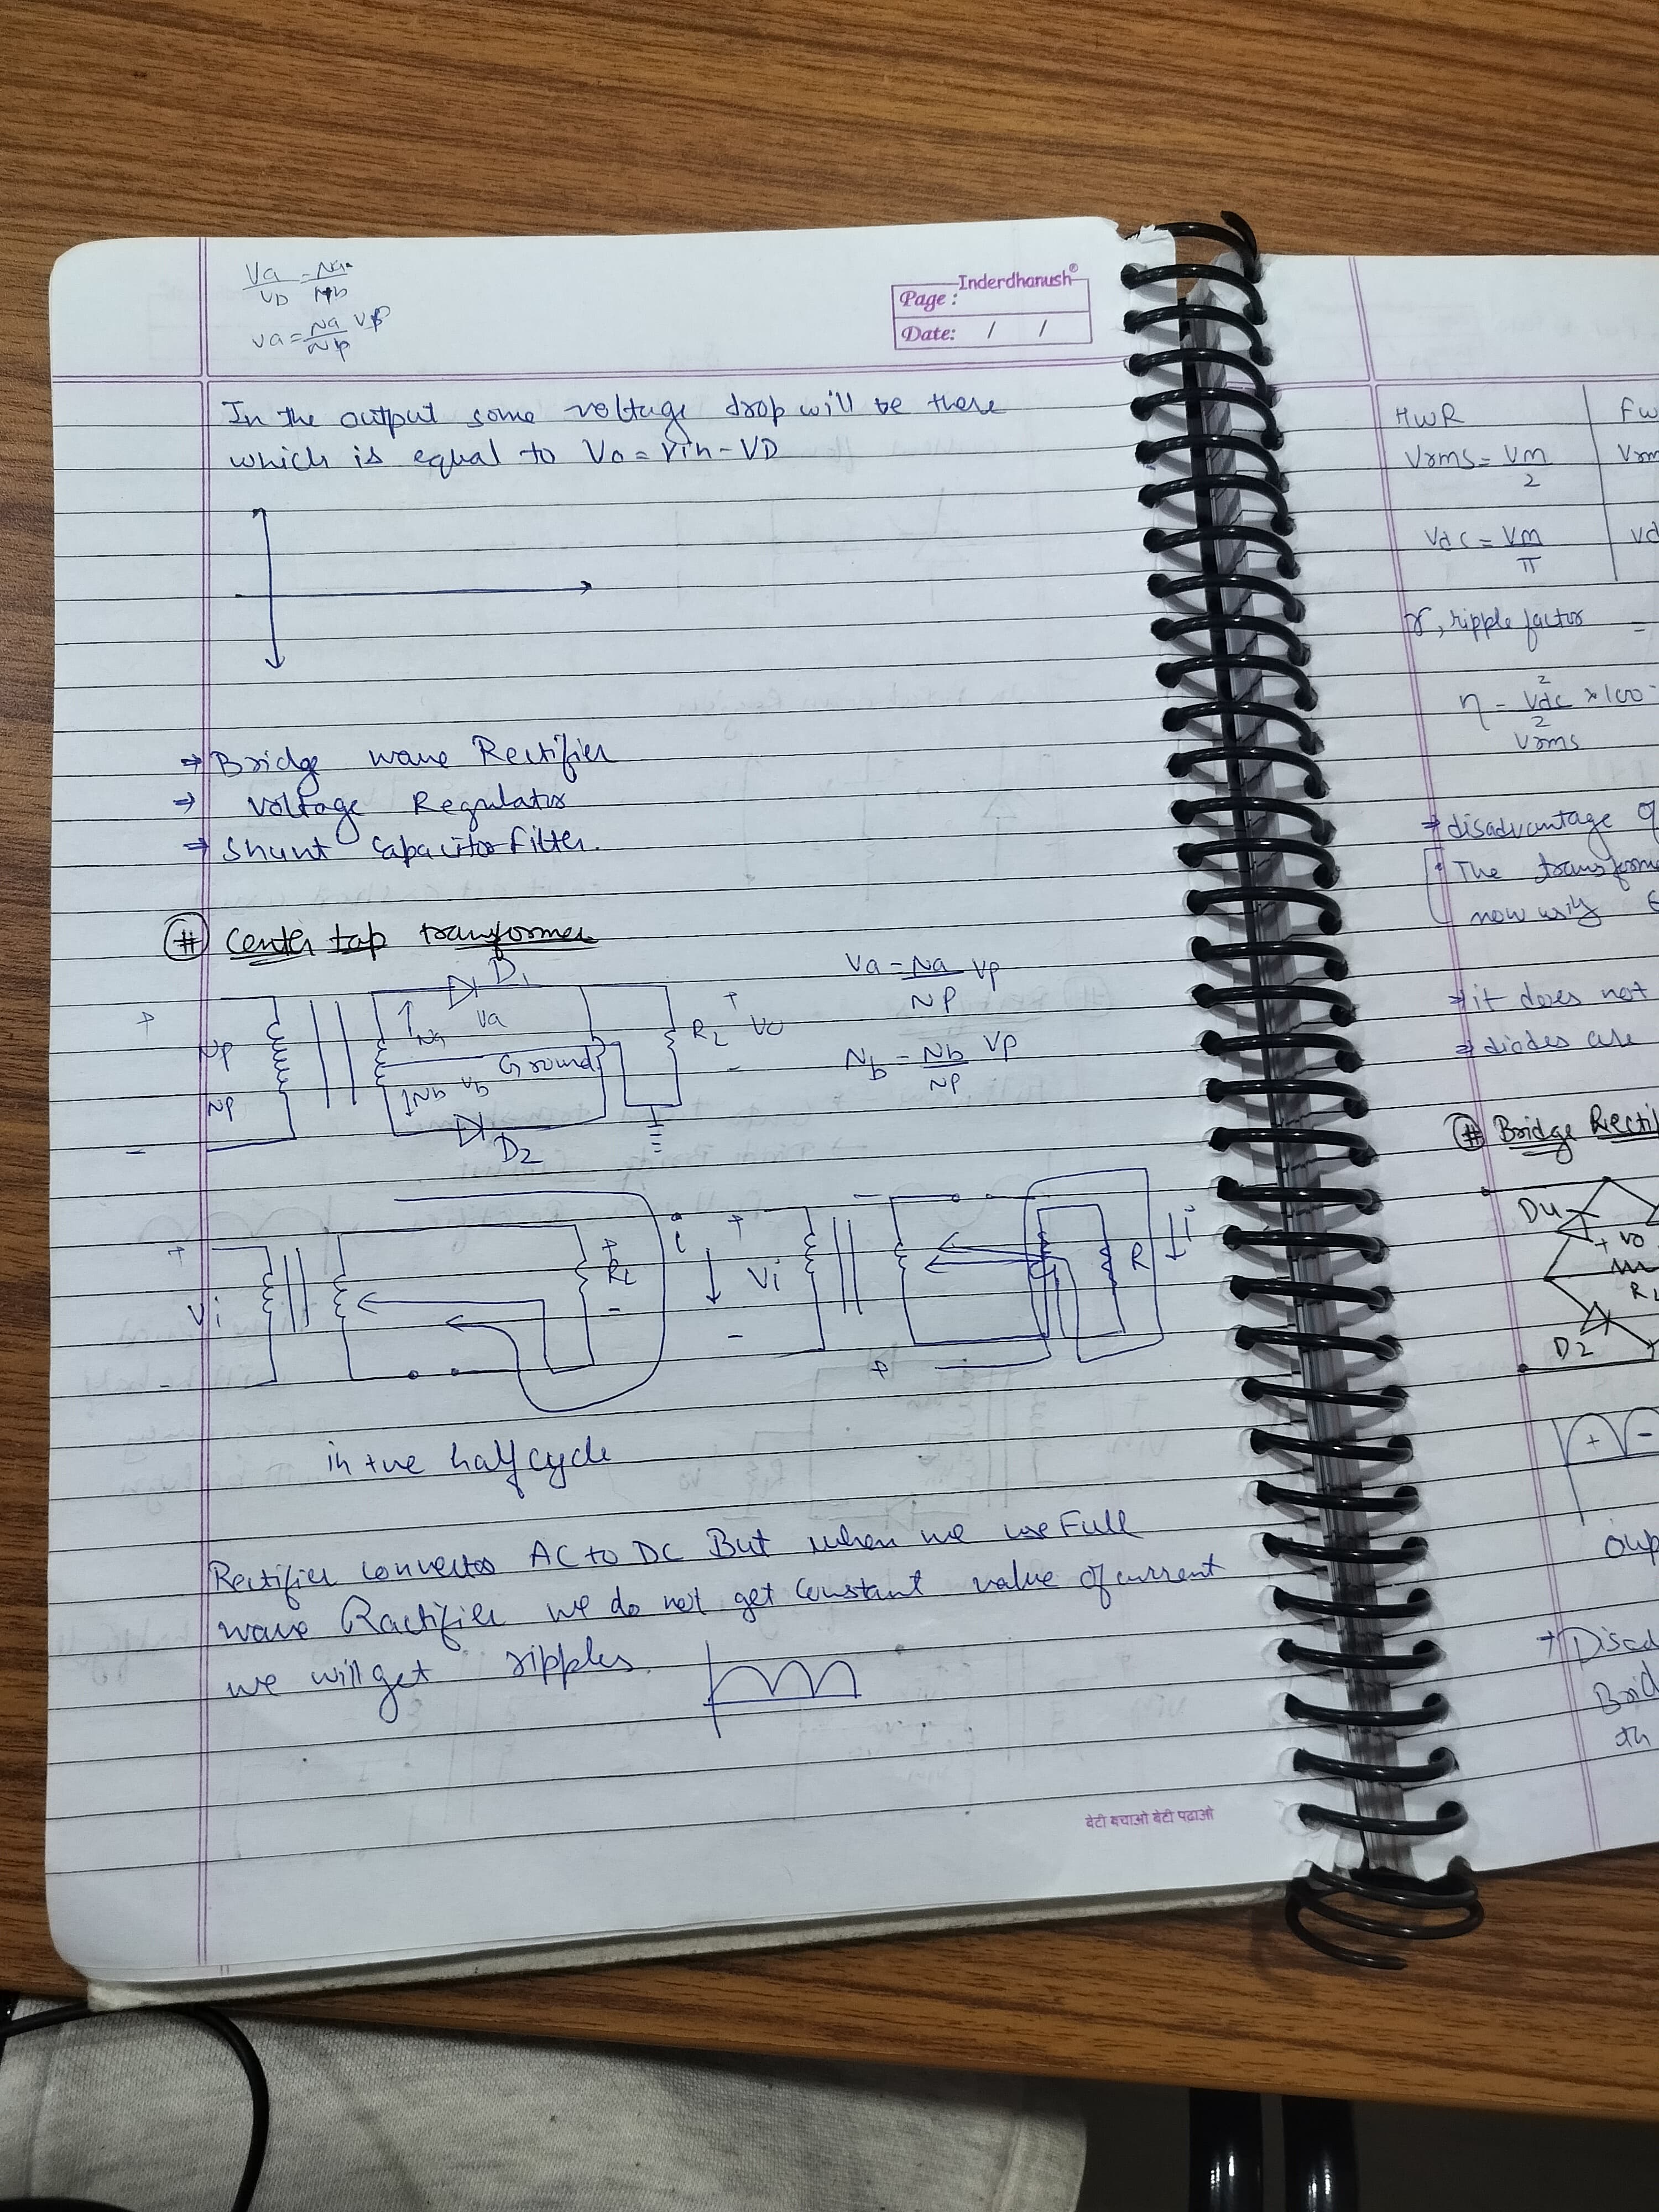 Va/VD = Na/Nb
Va = Na/Np Vp
Inderdhanush®
Page :
Date: / /
In the output some voltage drop will be there
which is equal to Vo = Vin - VD
⇒ Bridge wave Rectifier
⇒ Voltage Regulator
⇒ Shunt Capacitor Filter.
# Center tap transformer
D1
+ Np Na Va RL + Vo
Ground
Np Nb Vb -
- D2
Va = Na/Np Vp
Nb = Nb/Np Vp
+ Vi - + RL - i
+ Vi - + R i
in +ve half cycle
Rectifier convertos AC to DC But when we use Full
wave Ractifier we do not get constant value of current
we will get ripples.
बेटी बचाओ बेटी पढाओ
HWR Fw
Vrms = Vm/2 Vrm
Vdc = Vm/π Vd
γ, ripple factor =
η = Vdc²/Vrms² × 100
⇒ disadvantage of
The transforme
now using
⇒ it does not
⇒ diodes are
# Bridge Recti
D4
+ Vo
RL
D2
+ -
oup
→ Disad
Brid
th